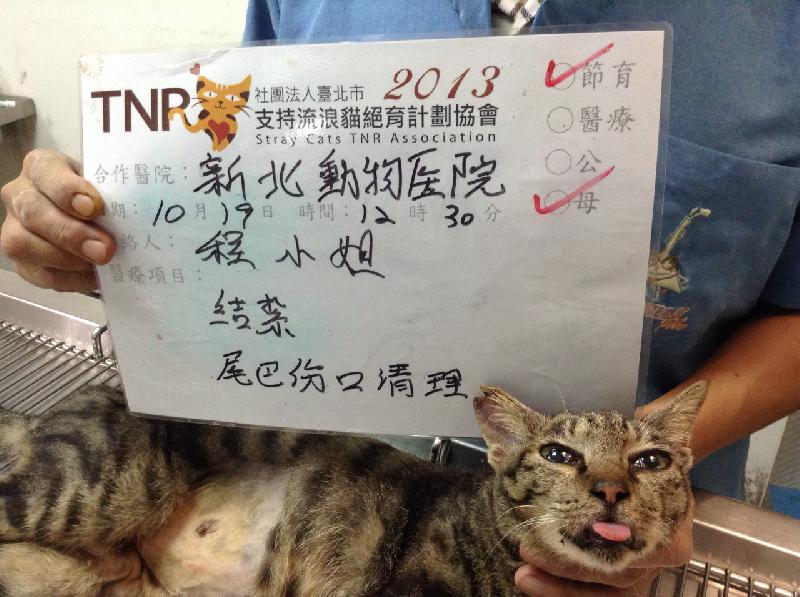 TNR 社團法人臺北市 2013
支持流浪貓絕育計劃協會
Stray Cats TNR Association
節育
醫療
公
母
合作醫院：新北動物医院
期：10月19日 時間：12時30分
絡人：程小姐
醫療項目：
結紮
尾巴份口清理